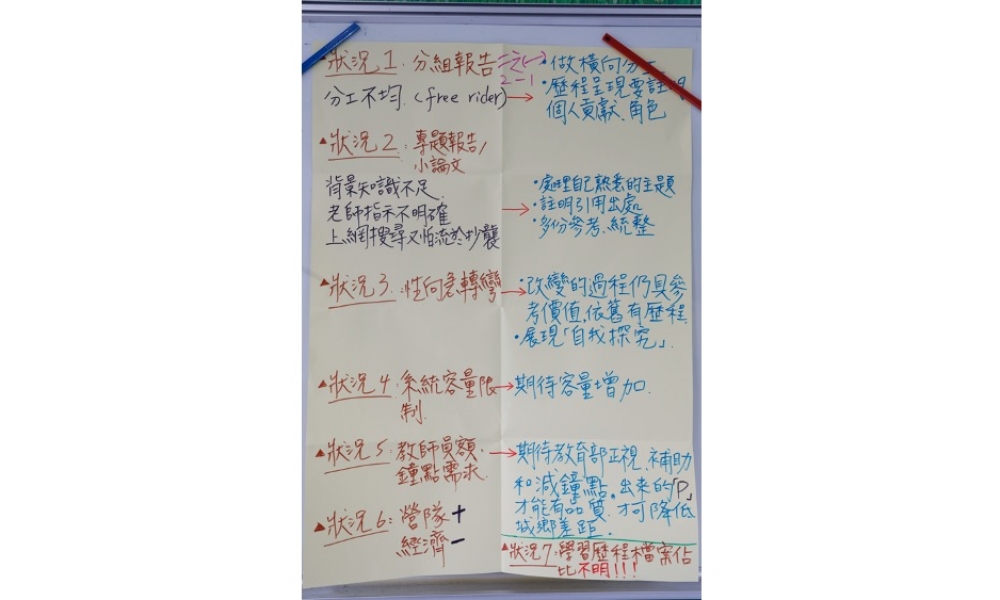 ▲狀況1：分組報告
分工不均.(free rider)→
2-1
•做橫向分工
•歷程呈現要註明
個人貢獻、角色
▲狀況2：專題報告/
小論文
背景知識不足
老師指示不明確
上網搜尋又怕流於抄襲
→
•處理自己熟悉的主題
•註明引用出處
•多份參考、統整
▲狀況3：性向急轉彎
→•改變的過程仍具參
考價值，依舊有歷程
•展現「自我探究」.
▲狀況4：系統容量限
制.
→期待容量增加.
▲狀況5：教師員額、
鐘點需求.
→期待教育部正視、補助
和減鐘點。出來的「P」
才能有品質.才可降低
城鄉差距.
▲狀況6：營隊+
經濟-
▲狀況7：學習歷程檔案佔
比不明!!!